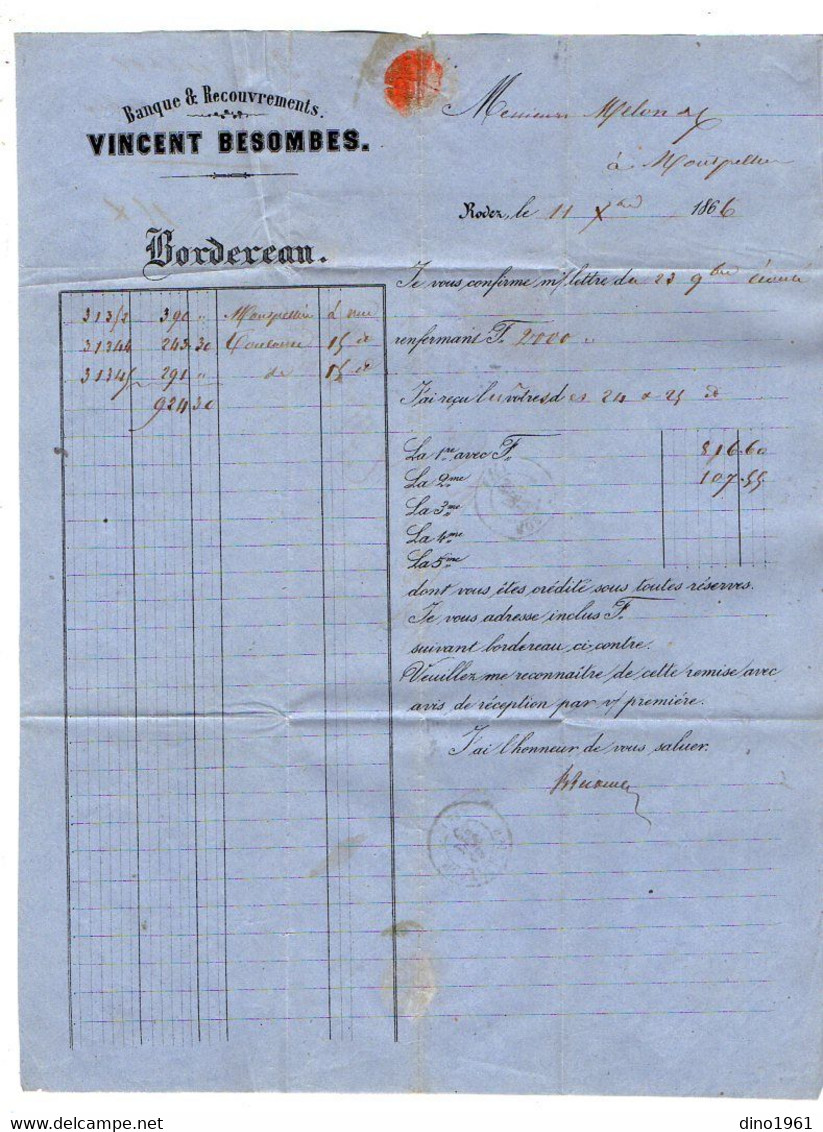 Banque & Recouvrements.
VINCENT BESOMBES.
Messieurs Melon
à Montpellier
Rodez, le 11 Xbre 1866
Bordereau.
313/2 390 " Montpellier
31344 243.30 Toulouse 15 do
31345 291 " do 15 do
924.30
Je vous confirme m/ lettre du 23 9bre écoulé
renfermant F. 2000 "
J'ai reçu les vôtres des 24 & 25 do
La 1re avec F. 816.60
La 2me 107.55
La 3me
La 4me
La 5me
dont vous êtes crédité sous toutes réserves.
Je vous adresse inclus F.
suivant bordereau ci-contre.
Veuillez me reconnaître de cette remise avec
avis de réception par v/ première.
J'ai l'honneur de vous saluer.
dino1961